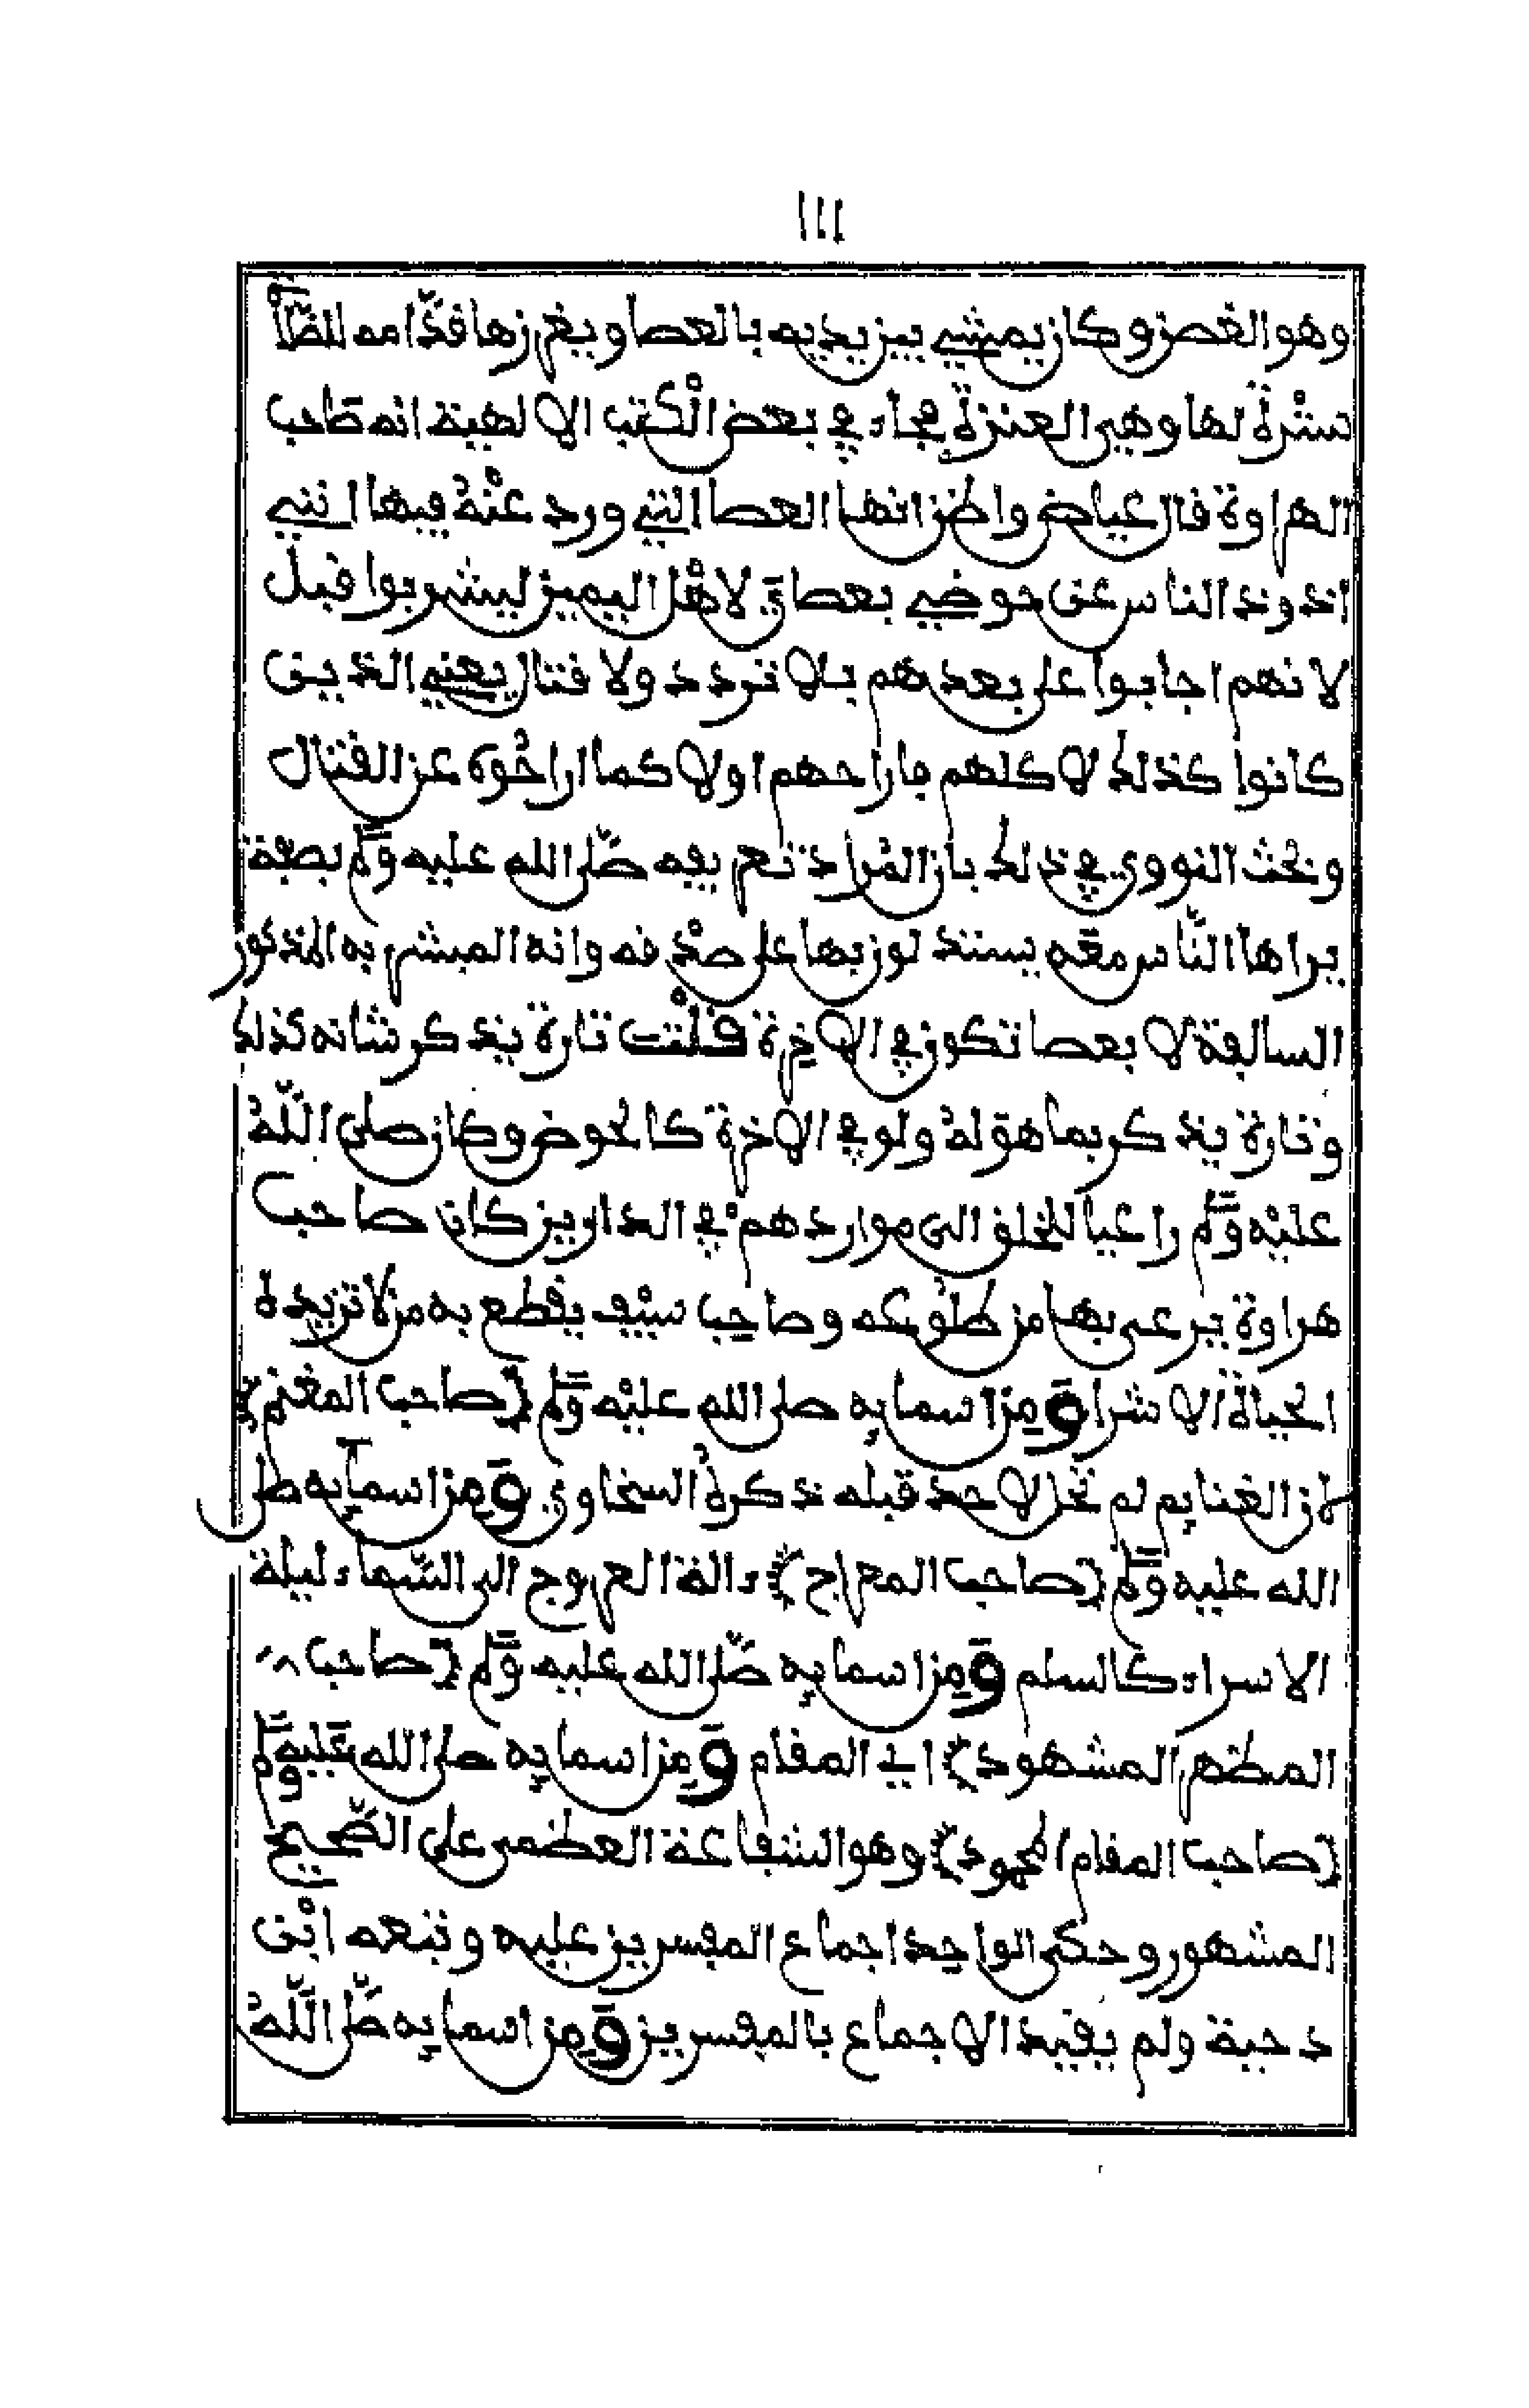 ١١١
وهو الغصن وكان يمشي بين يديه بالعصا ويغرزها قدّامه للصّلاة
سترة لها وهي العنزة فجاء في بعض الكتب الالهية انه صاحب
الهراوة قال عياض واظن انها العصا التي ورد عنه فيها انني
اذود الناس عن حوضي بعصاي لاهل اليمين ليشربوا قبل
لانهم اجابوا على بعدهم بلا تردد ولا قتال يعني الذين
كانوا كذلك لا كلهم فاراحهم اولا كما اراحوه عن القتال
وبحث النووي في ذلك بان المراد تعريفه صلى الله عليه وسلم بصفة
يراها الناس معه يستدلون بها على صدقه وانه المبشر به المذكور
السالفة لا بعصا تكون في الاخرة قلت تارة يذكر شانه كذلك
وتارة يذكر بما هو له ولو في الاخرة كالحوض وكان صلى الله
عليه وسلم راعيا للخلق الى مواردهم في الدارين كان صاحب
هراوة يرعى بها من طلوعه وصاحب سيف يقطع به من لا تزيده
الحياة الا شرا ومن اسمايه صلى الله عليه وسلم (صاحب المغنم)
لان الغنايم لم تحل لاحد قبله ذكره السخاوي ومن اسمايه صلى
الله عليه وسلم (صاحب المعراج) ءالة العروج الى السماء ليلة
الاسراء كالسلم ومن اسمايه صلى الله عليه وسلم (صاحب
المظهر المشهود) اي المقام ومن اسمايه صلى الله عليه وسلم
(صاحب المقام المحمود) وهو الشفاعة العظمى على الصحيح
المشهور وحكى الواحد اجماع المفسرين عليه وتبعه ابن
دحية ولم يقيد الاجماع بالمفسرين ومن اسمايه صلى الله